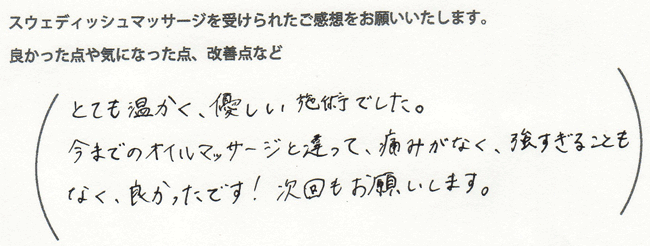 スウェディッシュマッサージを受けられたご感想をお願いいたします。
良かった点や気になった点、改善点など
とても温かく、優しい施術でした。
今までのオイルマッサージと違って、痛みがなく、強すぎることも
なく、良かったです！次回もお願いします。